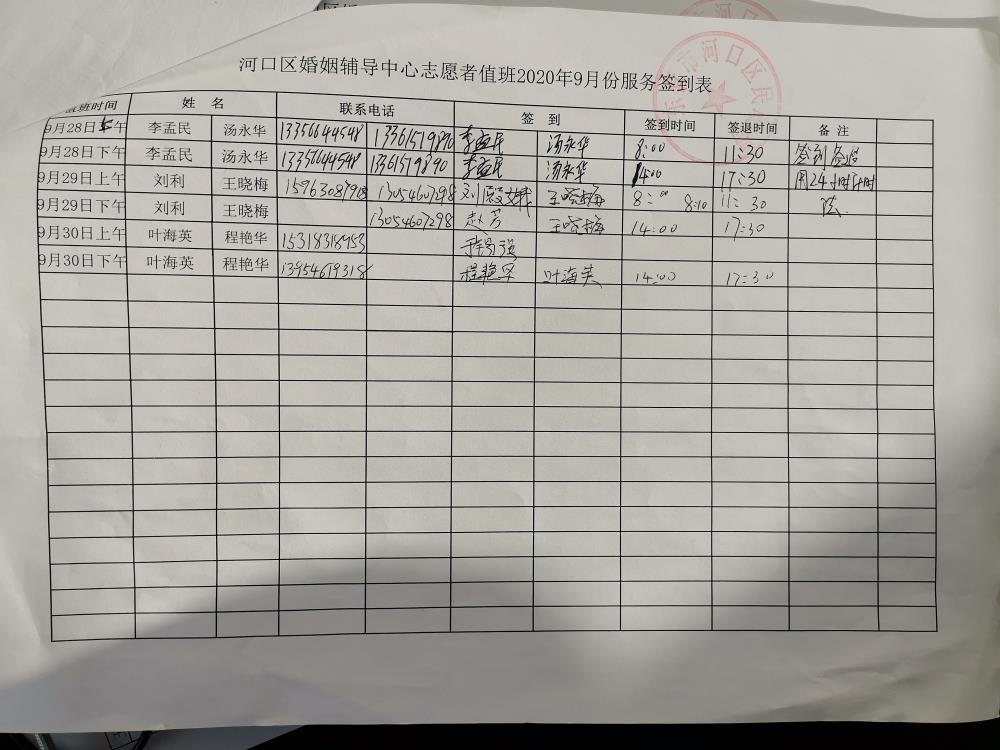 河口区婚姻辅导中心志愿者值班2020年9月份服务签到表
值班时间 姓 名 联系电话 签 到 签到时间 签退时间 备 注
9月28日上午 李孟民 汤永华 13356644548 13361519890 李孟民 汤永华 8:00 11:30 签到签退
9月28日下午 李孟民 汤永华 13356644548 13361519890 李孟民 汤永华 14:00 17:30 用24小时计时
9月29日上午 刘利 王晓梅 13054607298 王晓梅 8:00 8:10 11:30 法.
9月29日下午 刘利 王晓梅 13054607298 赵芳 王晓梅 14:00 17:30
9月30日上午 叶海英 程艳华 15318315953
9月30日下午 叶海英 程艳华 13954619318 程艳华 叶海英 14:00 17:30
市河口区民